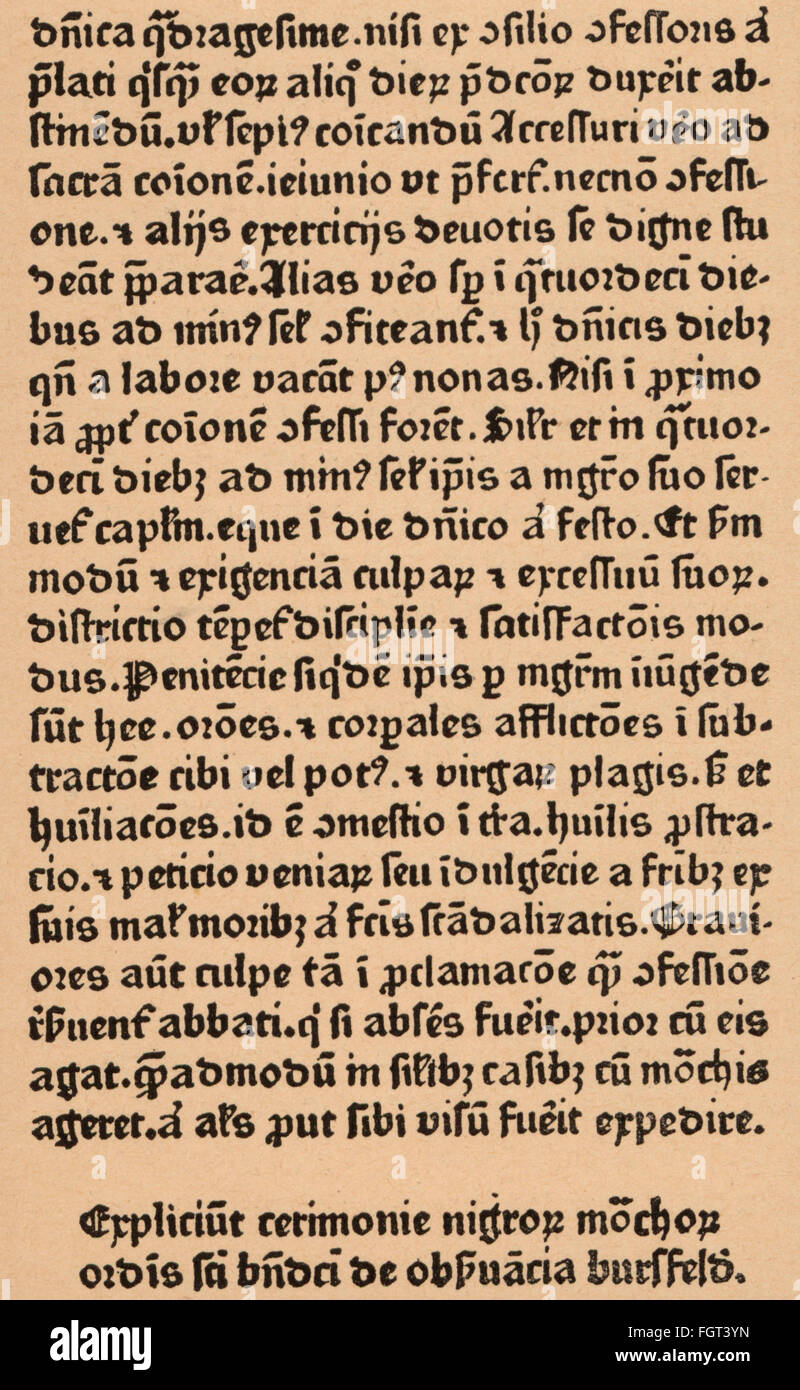 dn̄ica qᷓdꝛagesime.nisi ex ↄsilio ↄfessoꝛis aᷓ
p̄lati qͥsqᷓꝫ eoꝝ aliqͦꝫ dieꝝ p̄dc̄oꝝ duxe̕it ab-
stinēdū.vl̕ sepi⁹ coīcandū Accessuri ve̕o ad
sacrā coīonē.ieiunio vt p̄fert̕.necnō ↄfessi-
one.⁊ alijs exercicijs deuotis se digne stu
deāt p̄parae̕.Alias ve̕o sꝑ ī qᷓtuoꝛdecī die-
bus ad min⁹ sel̕ ↄfiteant̕.⁊ hͥ dn̄icis diebꝫ
qn̄ a laboꝛe vacāt p⁹ nonas.Nisi ī ꝓximo
iā ꝓpt̕ coīonē ↄfessi foꝛēt.Sil̕r et in qᷓtuoꝛ-
decī diebꝫ ad min⁹ sel̕ ip̄is a mgr̄o suo ser-
uet̕ capl̕m.eque ī die dn̄ico aᷓ festo.Et ẜm
modū ⁊ exigenciā culpaꝝ ⁊ excessuū suoꝝ.
districtio tēꝑet̕ discipline ⁊ satisfactōis mo-
dus.Penitēcie siqͥdē ip̄is ꝑ mgr̄m iniūgēde
sūt hee.oꝛōes.⁊ coꝛꝑales afflictōes ī sub-
tractōe cibi vel pot⁹.⁊ virgaꝝ plagis.ẜ et
huīliacōes.id ē ↄmestio ī tr̄a.huīlis ꝓstra-
cio.⁊ peticio veniaꝝ seu īdulgēcie a fr̄ibꝫ ex
suis mal̕ moribꝫ aᷓ fc̄is scādalizatis.Graui-
oꝛes aūt culpe tā ī ꝓclamacōe qᷓꝫ ↄfessiōe
r̕ẜuent̕ abbati.qͥ si absēs fue̕it.pꝛioꝛ cū eis
agat.qᷓꝫadmodū in sil̕ibꝫ casibꝫ cū mōchis
ageret.aᷓ al̕s ꝓut sibi visū fue̕it expedire.
Expliciūt cerimonie nigroꝝ mōchoꝝ
oꝛdīs sc̄i bn̄dcī de obẜuācia bursfeld̕.
alamy
Image ID: FGT3YN
www.alamy.com